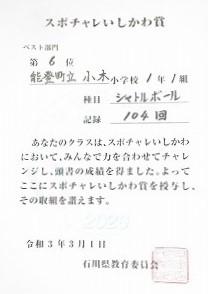 スポチャレいしかわ賞
ベスト部門
第 6 位
能登町立 小木小学校 1年 1組
種目 シャトルボール
記録 104回
あなたのクラスは、スポチャレいしかわ
において、みんなで力を合わせてチャレ
ンジし、頭書の成績を得ました。よって
ここにスポチャレいしかわ賞を授与し、
その取組を讃えます。
2020
令和3年3月1日
石川県教育委員会